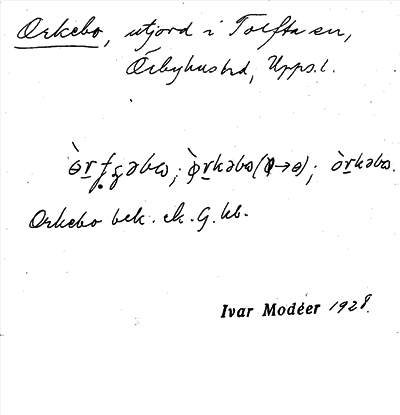 Orkebo, utjord i Tolfta sn,
Örbyhus hd, Upps. l.
òrkabo.
Orkebo bek. ek. G. kb.
Ivar Modéer 1928.